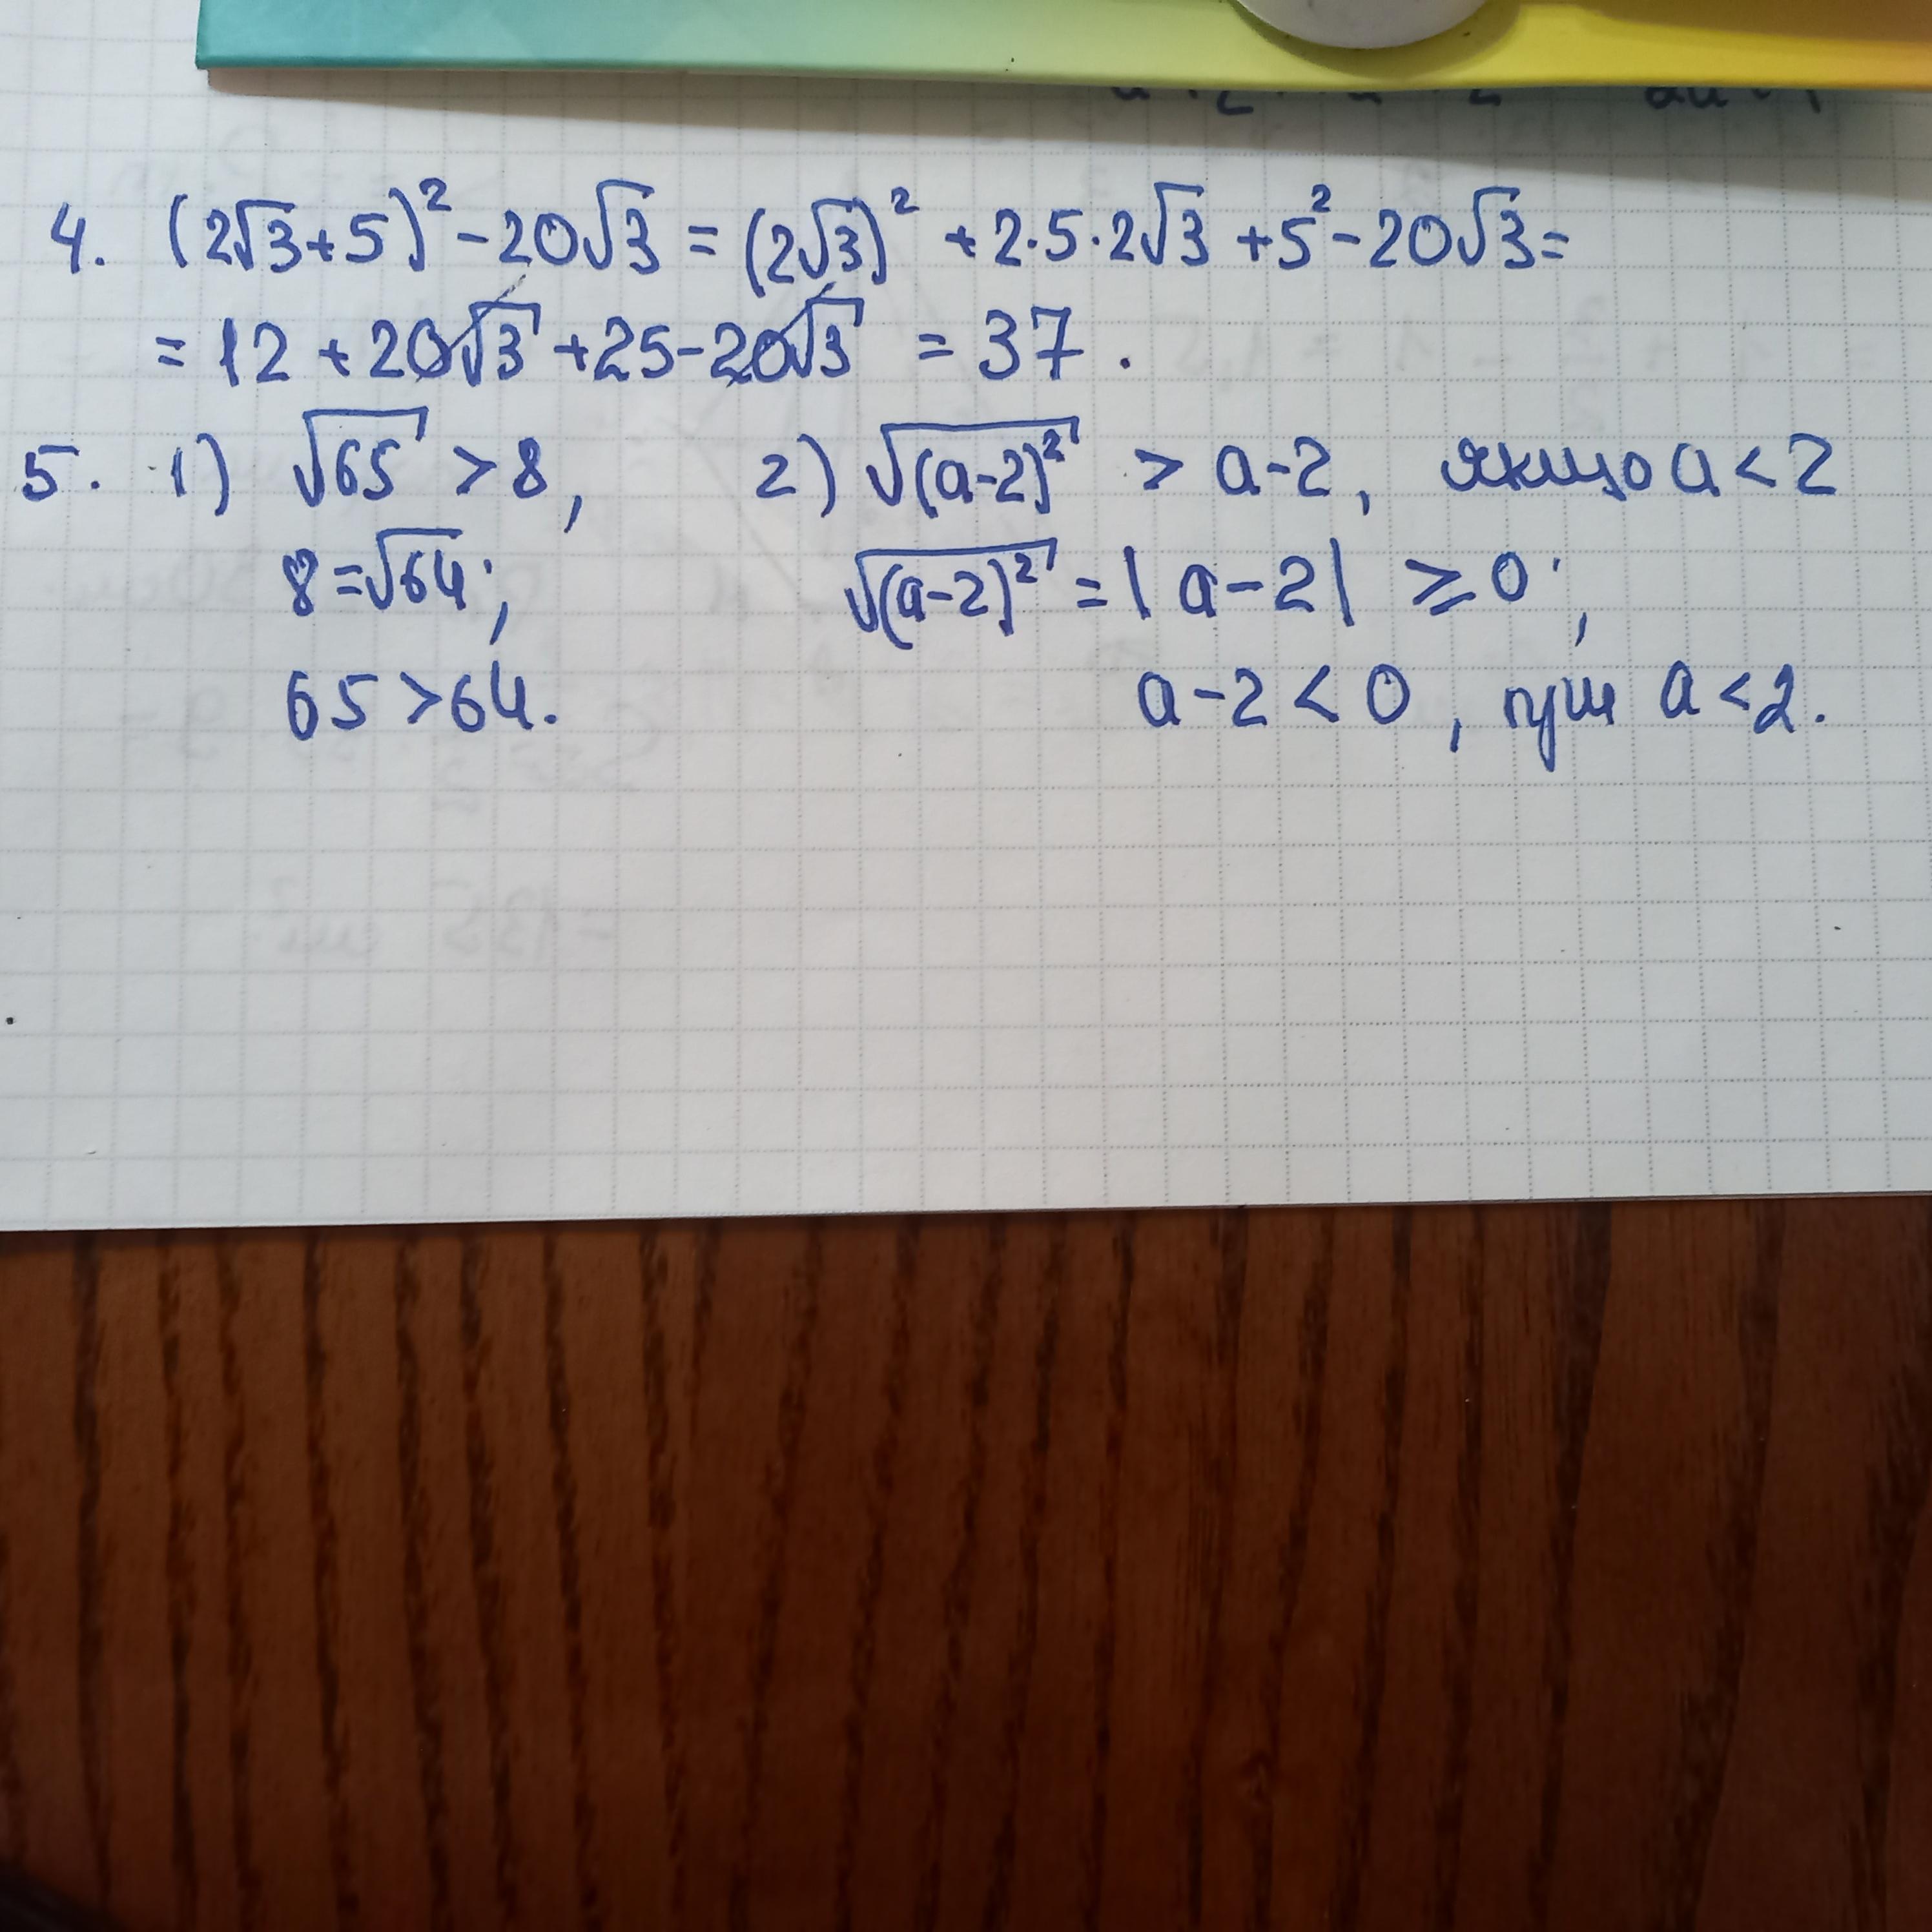 4. (2√3+5)² - 20√3 = (2√3)² + 2·5·2√3 + 5² - 20√3 =
= 12 + 20√3 + 25 - 20√3 = 37.
5. 1) √65 > 8, 2) √(a-2)² > a-2, якщо a < 2
8 = √64; √(a-2)² = |a-2| ≥ 0;
65 > 64. a-2 < 0, при a < 2.